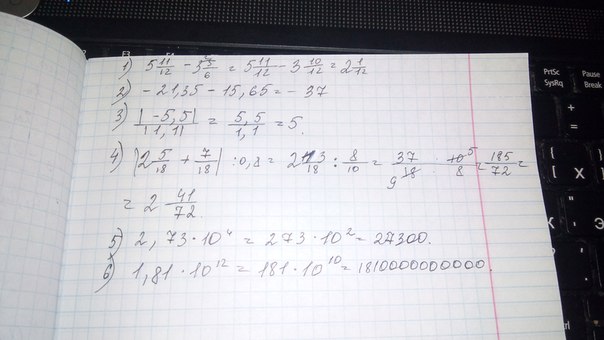 1) 5 11/12 - 3 5/6 = 5 11/12 - 3 10/12 = 2 1/12
2) - 21,35 - 15,65 = - 37
3) |-5,5| / |1,1| = 5,5 / 1,1 = 5.
4) |2 5/18 + 7/18| : 0,8 = 2 13/18 : 8/10 = 37/18 · 10/8 = 185/72 =
9 5
= 2 41/72.
5) 2,73 · 10⁴ = 273 · 10² = 27300.
6) 1,81 · 10¹² = 181 · 10¹⁰ = 1810000000000.
PrtSc
SysRq
Pause
Break
+
=
{
[
Х